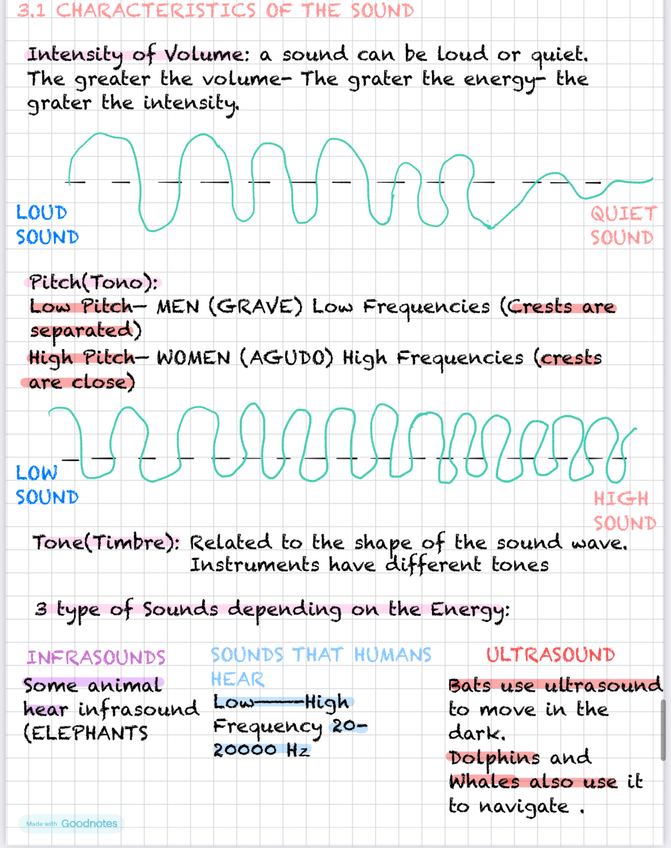 3.1 CHARACTERISTICS OF THE SOUND
Intensity of Volume: a sound can be loud or quiet.
The greater the volume- The grater the energy- the
grater the intensity.
LOUD
SOUND
QUIET
SOUND
Pitch(Tono):
Low Pitch- MEN (GRAVE) Low Frequencies (Crests are
separated)
High Pitch- WOMEN (AGUDO) High Frequencies (crests
are close)
LOW
SOUND
HIGH
SOUND
Tone(Timbre): Related to the shape of the sound wave.
Instruments have different tones
3 type of Sounds depending on the Energy:
INFRASOUNDS
Some animal
hear infrasound
(ELEPHANTS
SOUNDS THAT HUMANS
HEAR
Low——High
Frequency 20-
20000 Hz
ULTRASOUND
Bats use ultrasound
to move in the
dark.
Dolphins and
Whales also use it
to navigate .
Made with Goodnotes